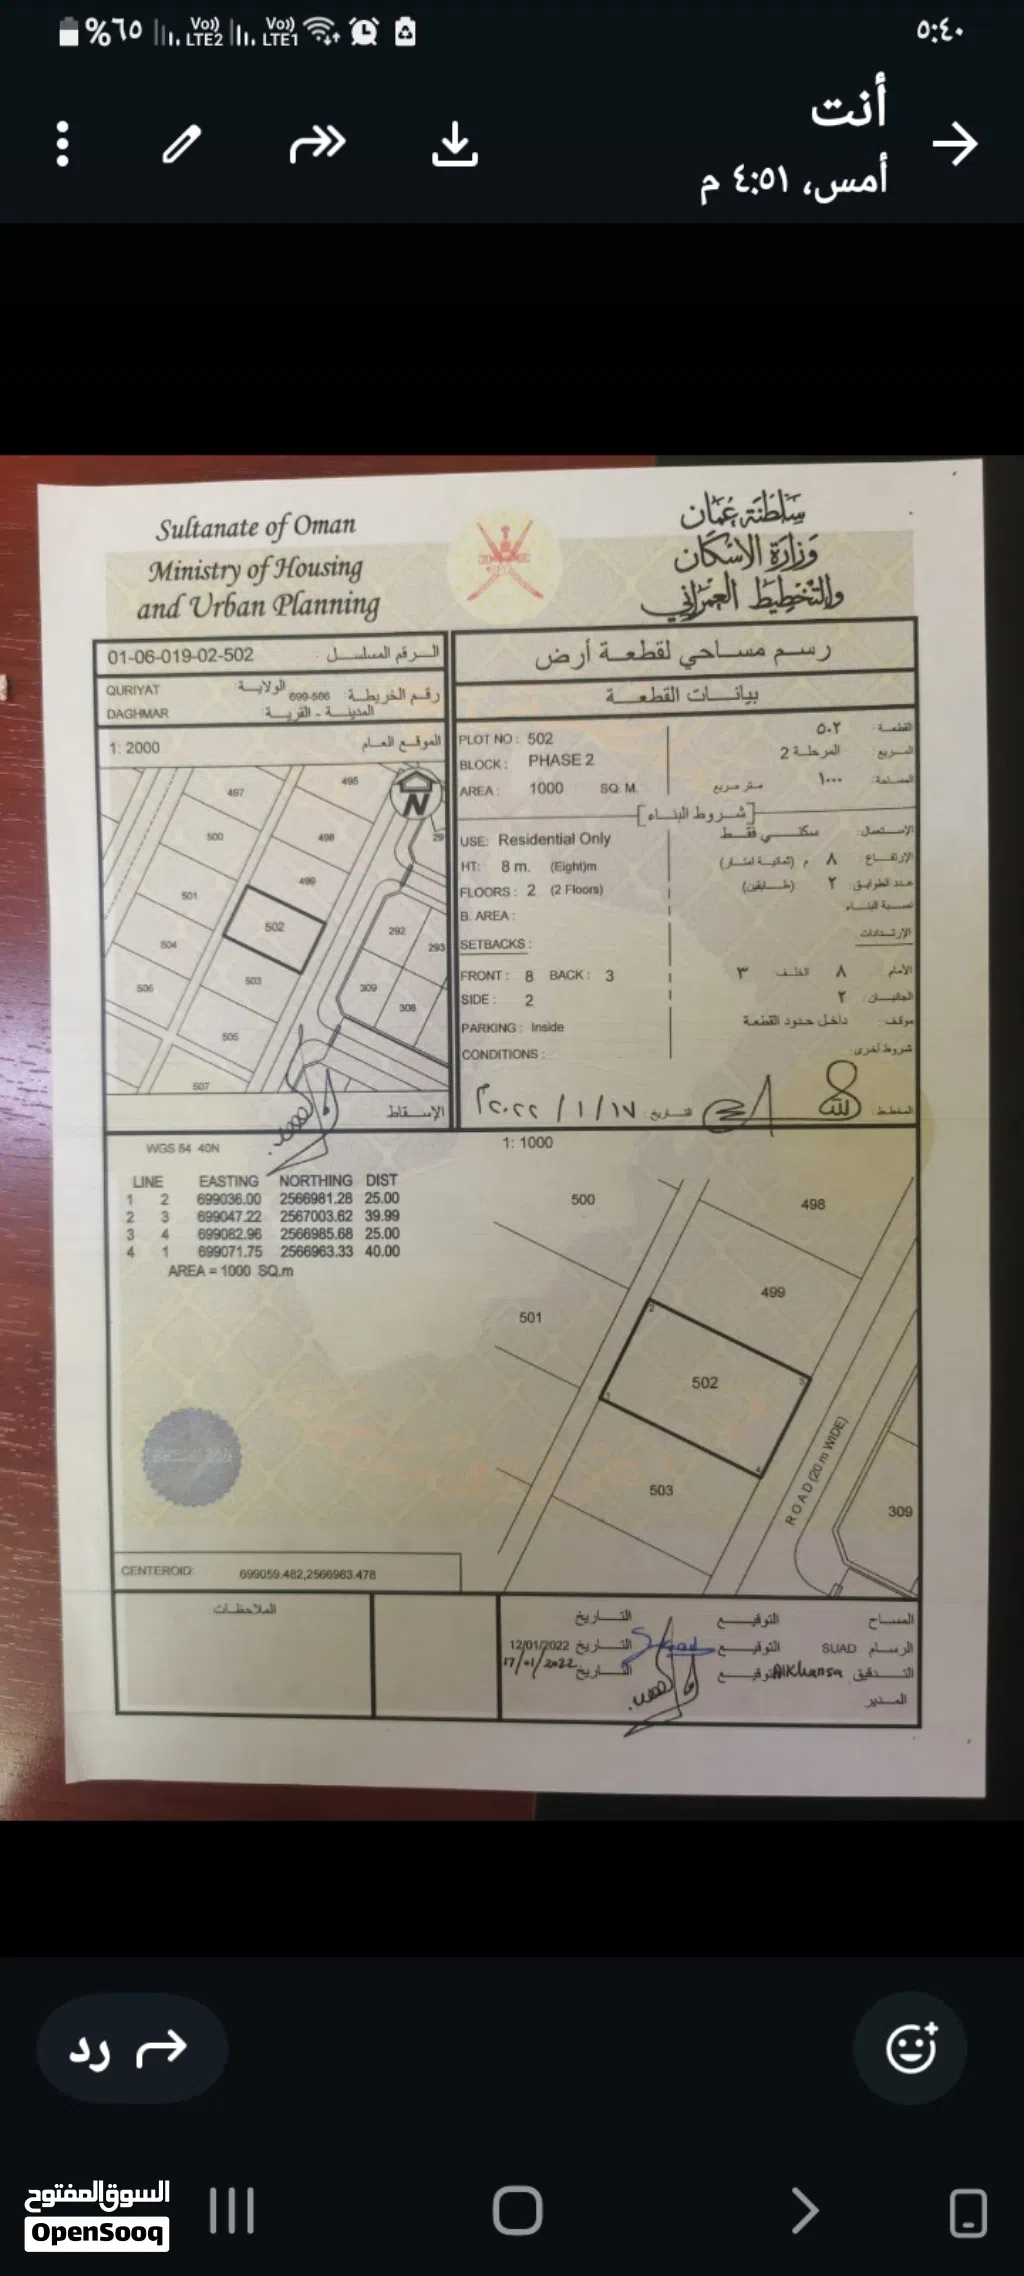 %٦٥ Vo)) LTE2 Vo)) LTE1 ٥:٤٠
أنت
أمس، ٤:٥١ م
Sultanate of Oman
Ministry of Housing
and Urban Planning
سلطنة عمان
وزارة الاسكان
والتخطيط العمراني
01-06-019-02-502 الرقم المسلسل :
QURIYAT الولاية
699-566 رقم الخريطة:
DAGHMAR المدينة - القرية :
1: 2000 الموقع العام
497
495
500
498
29
499
501
502
292
504
293
503
506
309
308
505
507
N
الإسقاط
رسم مساحي لقطعة أرض
بيانات القطعة
PLOT NO : 502
القطعة: ٥٠٢
BLOCK : PHASE 2
المربع: المرحلة 2
AREA : 1000 SQ. M.
المساحة: ١٠٠٠ متر مربع
[شروط البناء]
USE: Residential Only
الإستعمال: سكني فقط
HT: 8 m. (Eight)m
الإرتفاع: ٨ م (ثمانية امتار)
FLOORS : 2 (2 Floors)
عدد الطوابق: ٢ (طابقين)
B. AREA :
نسبة البناء
SETBACKS :
الإرتدادات:
FRONT : 8 BACK : 3
الأمام ٨ الخلف ٣
SIDE : 2
الجانبان: ٢
PARKING : Inside
موقف: داخل حدود القطعة
CONDITIONS :
شروط أخرى:
المخطط: التاريخ: ١٧/١/٢٠٢٢م
WGS 84 40N
1: 1000
LINE EASTING NORTHING DIST
1 2 699036.00 2566981.28 25.00
2 3 699047.22 2567003.62 39.99
3 4 699082.96 2566985.68 25.00
4 1 699071.75 2566963.33 40.00
AREA = 1000 SQ.m
500
498
499
501
502
503
309
1
2
3
4
ROAD (20 m WIDE)
CENTEROID: 699059.482,2566983.478
الملاحظات
المساح التوقيع التاريخ
الرسام SUAD التوقيع Suad التاريخ 12/01/2022
التدقيق Alkhansa التوقيع التاريخ 17/01/2022
المدير
رد
السوق المفتوح
OpenSooq